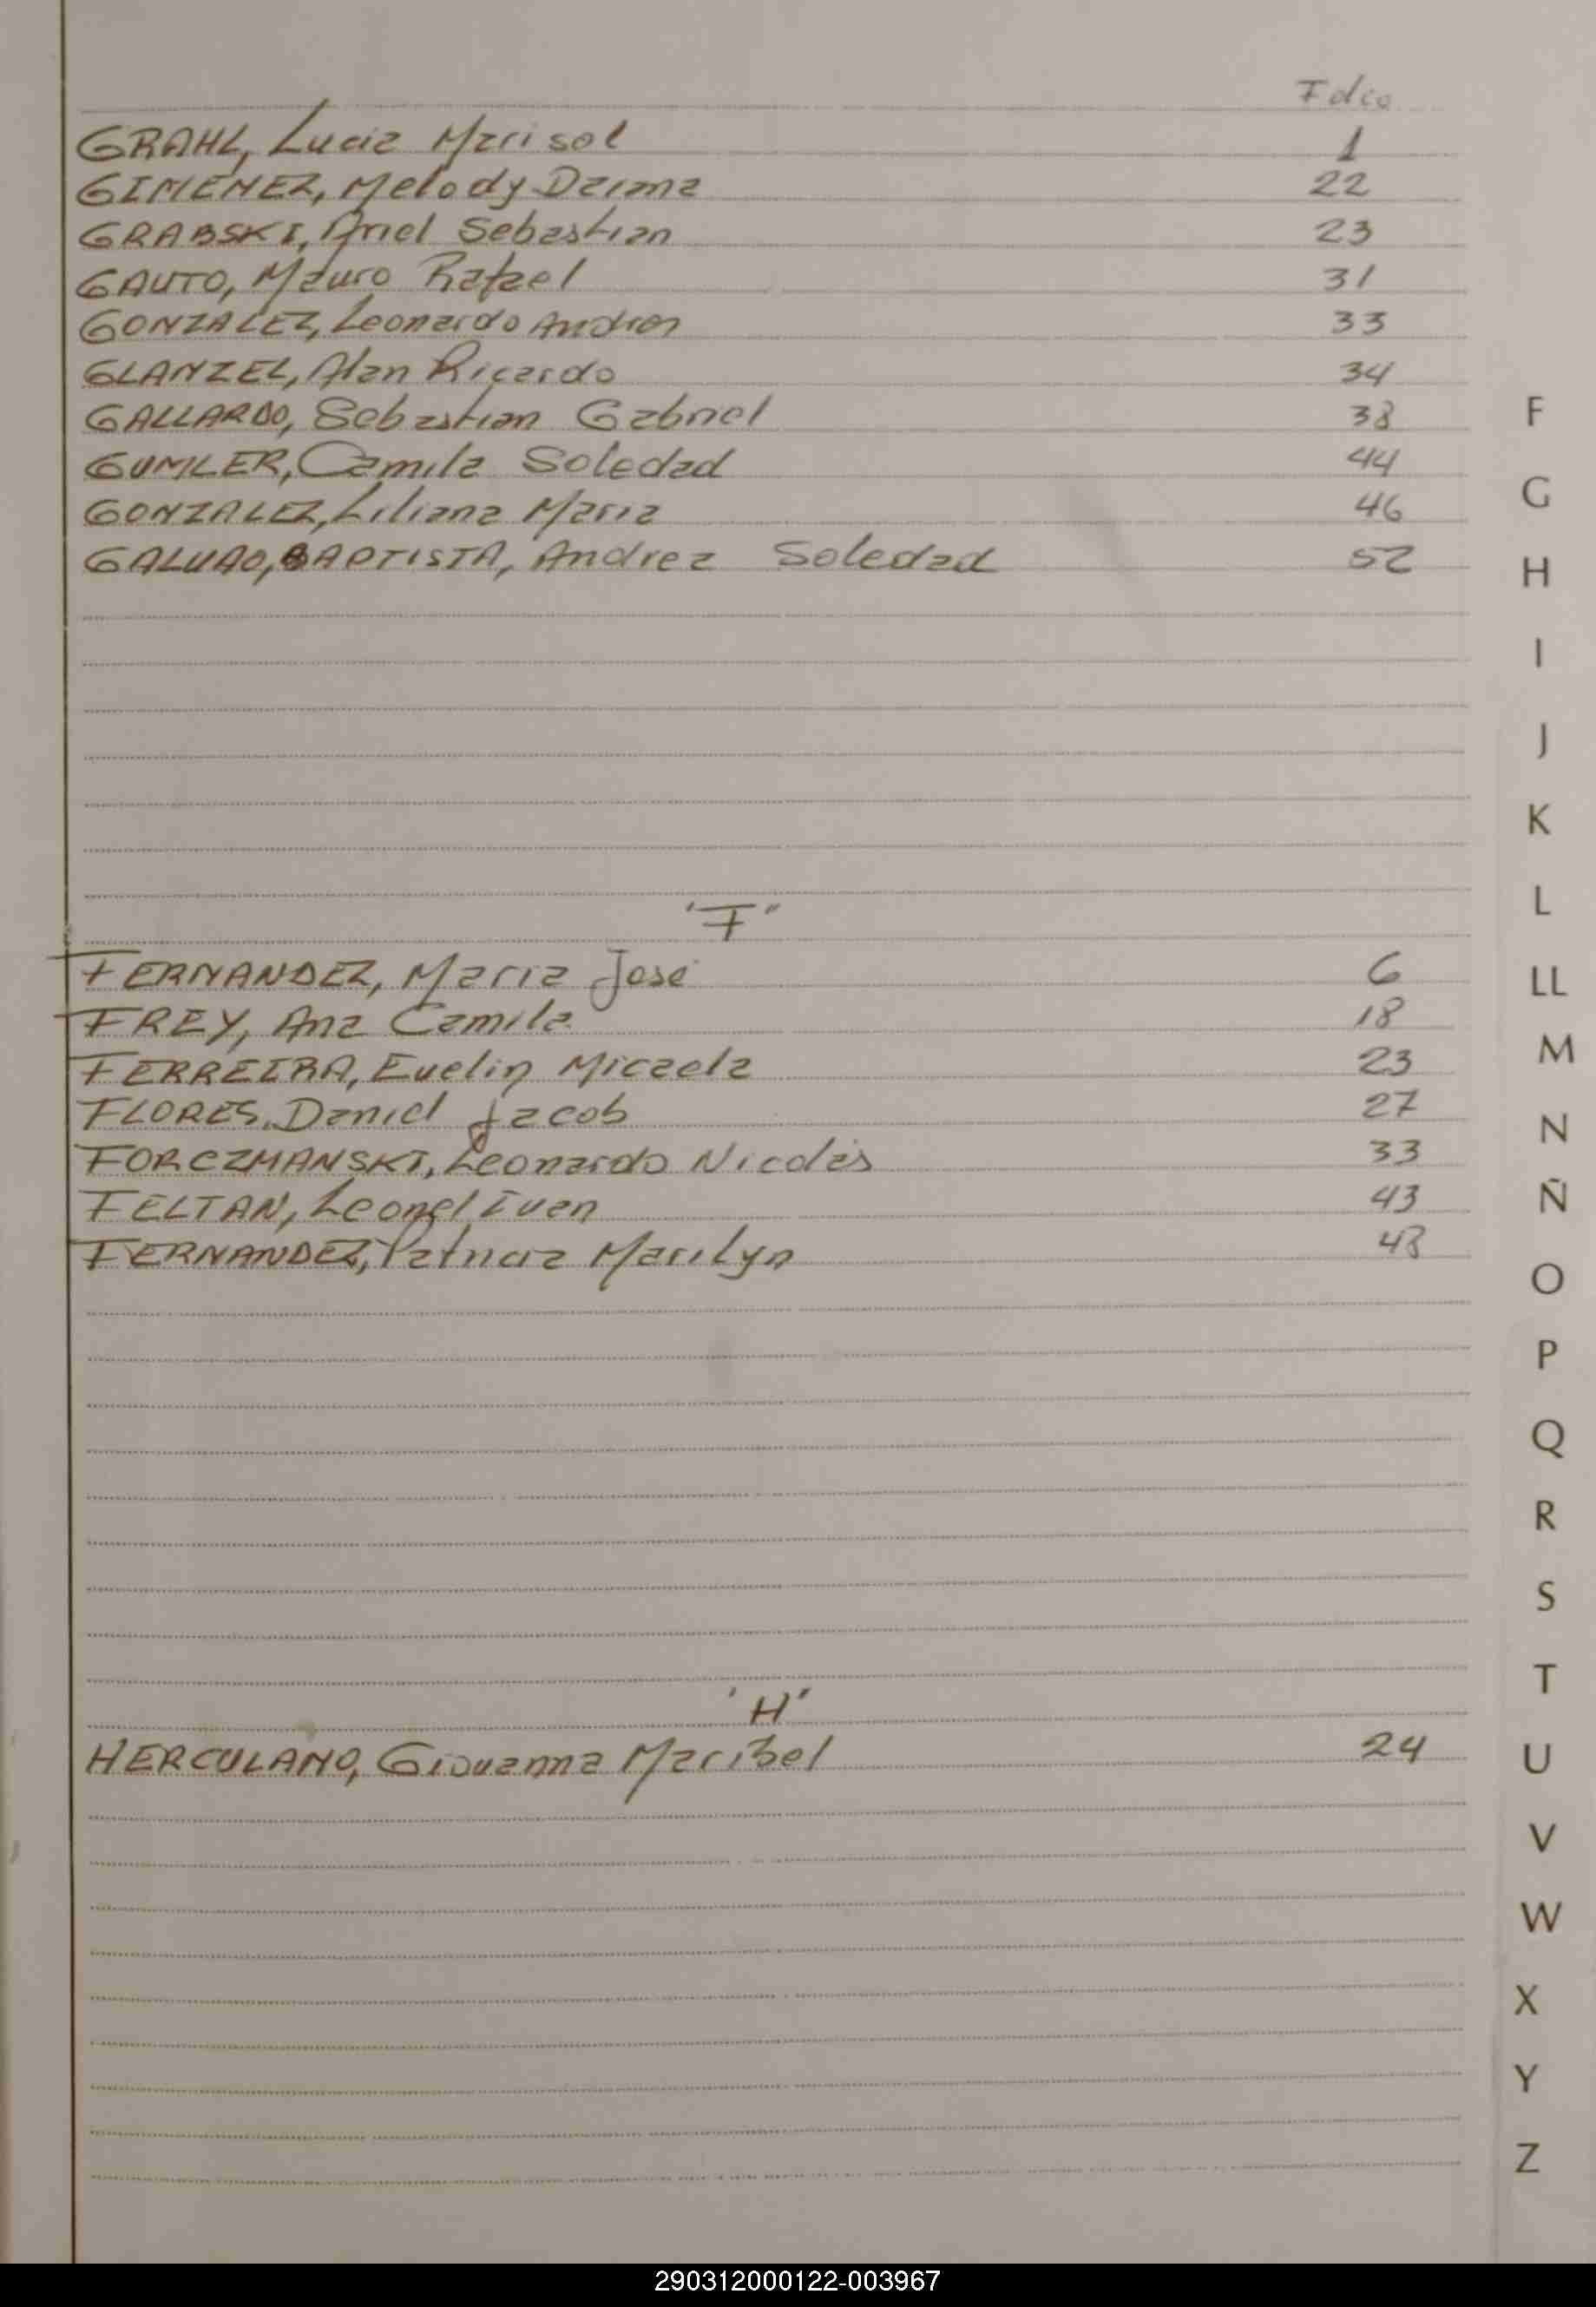 Folio
GRAHL, Lucia Marisol 1
GIMENEZ, Melody Daiana 22
GRABSKI, Ariel Sebastian 23
GAUTO, Mauro Rafael 31
GONZALEZ, Leonardo Andres 33
GLANZEL, Alan Ricardo 34
GALLARDO, Sebastian Gabriel 38
GUMLER, Camila Soledad 44
GONZALEZ, Liliana Maria 46
GALVAO, BAPTISTA, Andrea Soledad 52
"F"
FERNANDEZ, Maria José 6
FREY, Ana Camila 18
FERREIRA, Evelin Micaela 23
FLORES, Daniel Jacob 27
FORCZMANSKI, Leonardo Nicolás 33
FELTAN, Leonel Ivan 43
FERNANDEZ, Patricia Marilyn 48
"H"
HERCULANO, Giovanna Maribel 24
F
G
H
I
J
K
L
LL
M
N
Ñ
O
P
Q
R
S
T
U
V
W
X
Y
Z
290312000122-003967